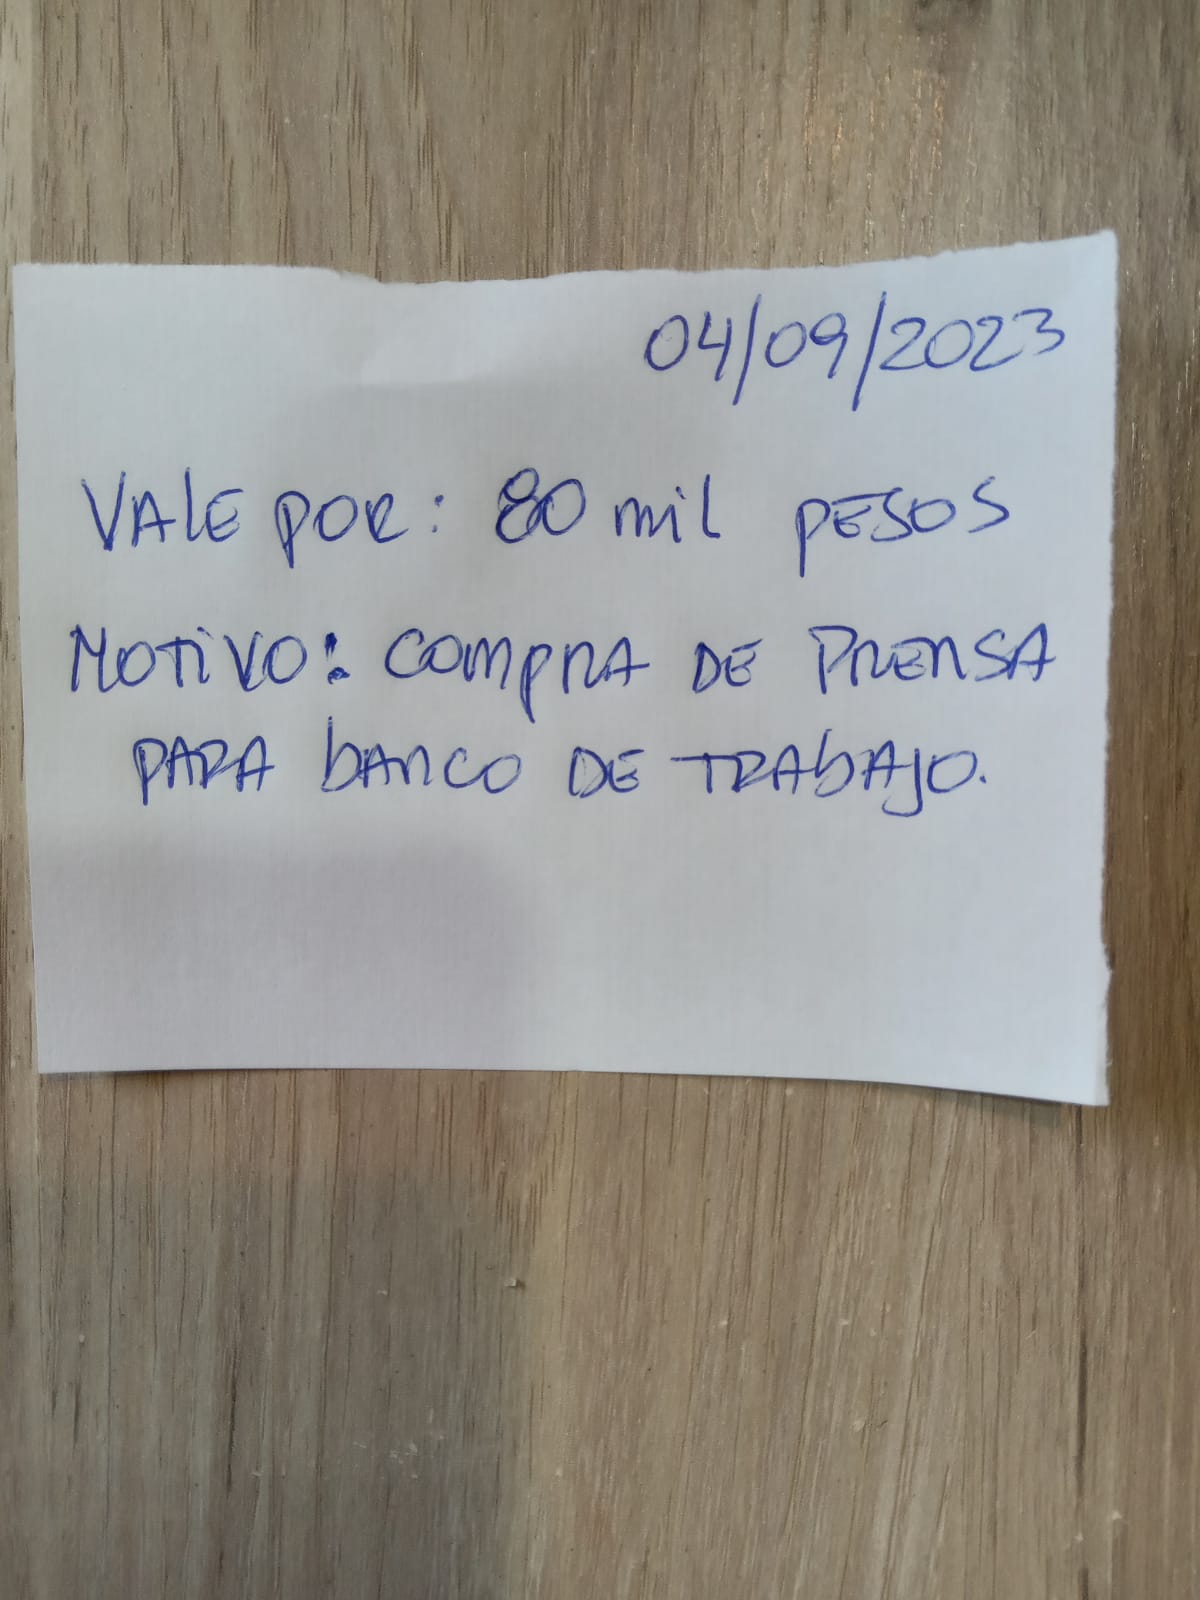 04/09/2023
VALE POR: 80 mil PESOS
MOTIVO: COMPRA DE PRENSA
PARA BANCO DE TRABAJO.